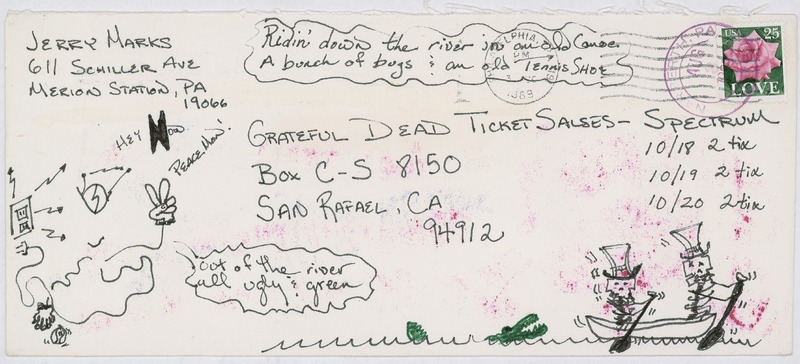 JERRY MARKS
611 SCHILLER AVE
MERION STATION, PA
19066
Ridin' down the river in an old Canoe
A bunch of bugs & an old TENNIS SHOE
1989
USA 25
LOVE
HEY NOW
PEACE NOW!
GRATEFUL DEAD TICKET SALSES - SPECTRUM
BOX C-S 8150
SAN RAFAEL, CA
94912
10/18 2 tix
10/19 2 tix
10/20 2 tix
out of the river
all ugly & green